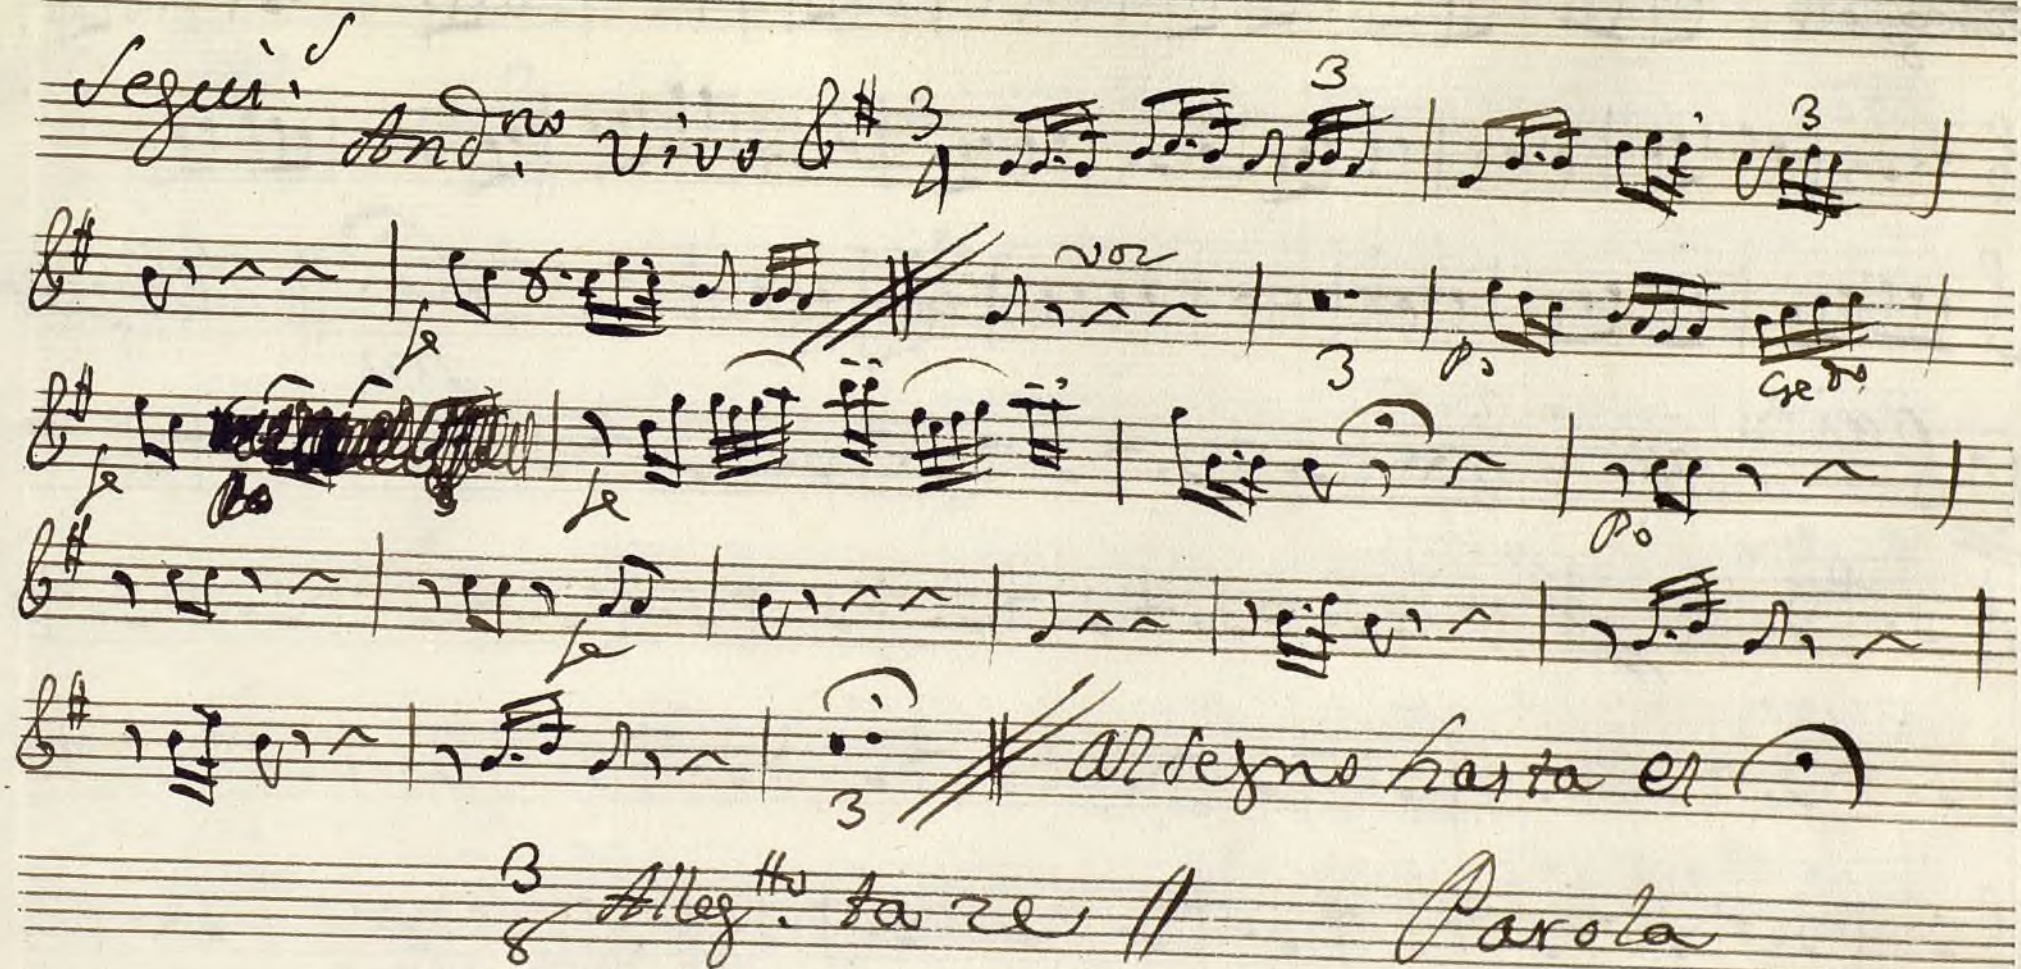 Segui.s And.no vivo 3 4 3 3
fe voz 3 Po
fe Po fe Po
fe
3 al segno hasta el
3 8 Alleg.tto taze // Parola